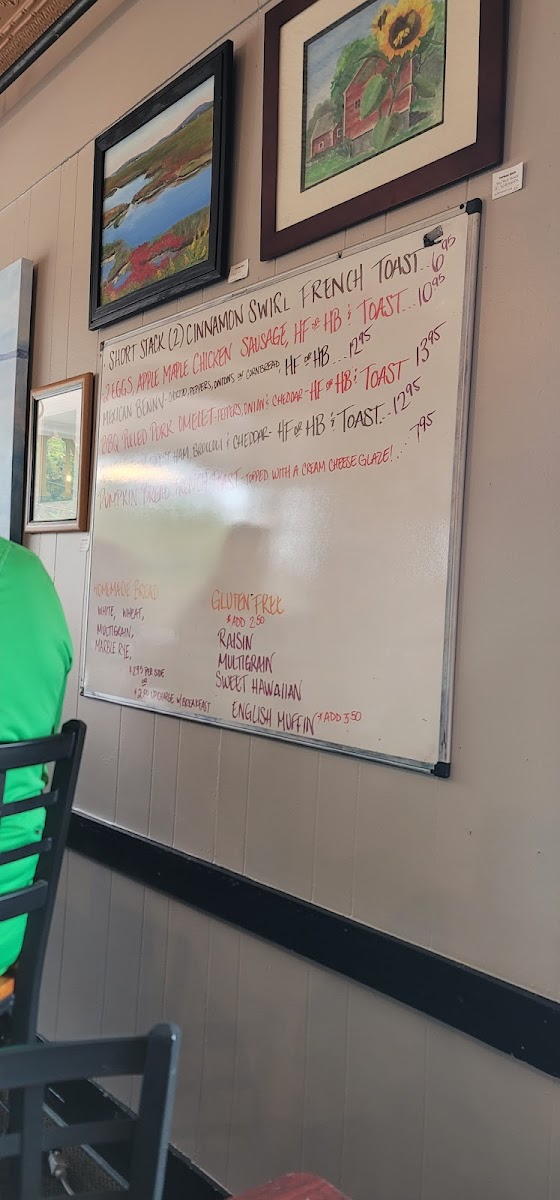 SHORT STACK (2) CINNAMON SWIRL FRENCH TOAST... 6 95
2 EGGS, APPLE MAPLE CHICKEN SAUSAGE, HF OR HB & TOAST... 10 95
MEXICAN BENNY - CHORIZO, PEPPERS, ONIONS ON CORNBREAD, HF OR HB... 12 95
BBQ PULLED PORK OMELET - PEPPERS, ONION & CHEDDAR - HF OR HB & TOAST 13 95
HAM, BROCCOLI & CHEDDAR - HF OR HB & TOAST... 12 95
PUMPKIN BREAD FRENCH TOAST - TOPPED WITH A CREAM CHEESE GLAZE!... 7 95
HOMEMADE BREAD
WHITE, WHEAT,
MULTIGRAIN,
MARBLE RYE,
$2.95 PER SIDE
OR
UPCHARGE W/ BREAKFAST
GLUTEN FREE
$ADD 2 50
RAISIN
MULTIGRAIN
SWEET HAWAIIAN
ENGLISH MUFFIN $ADD 3 50